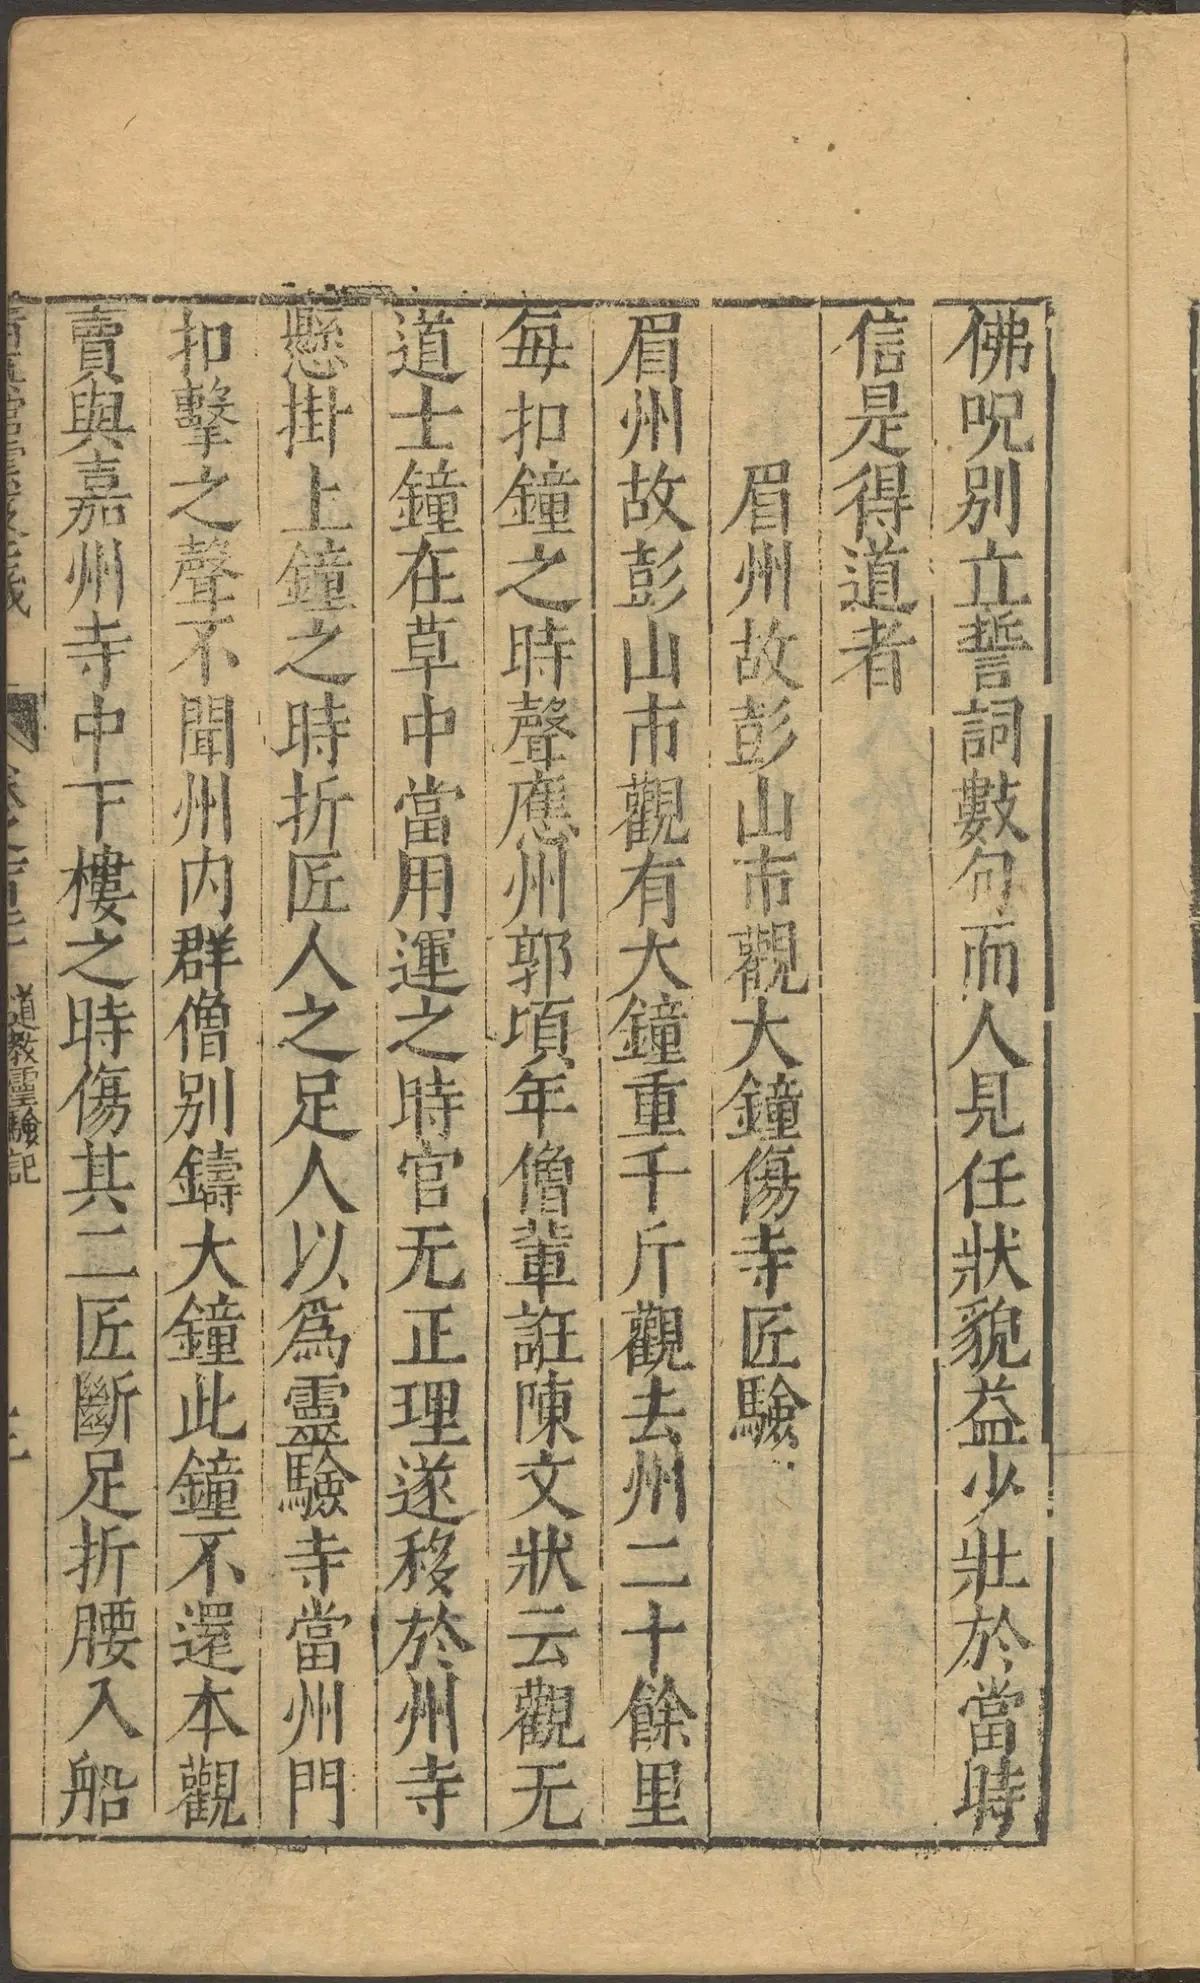 佛呪別立誓詞數句而人見任狀貌益少壯於當時
信是得道者
眉州故彭山市觀大鐘傷寺匠驗
眉州故彭山市觀有大鐘重千斤觀去州二十餘里
每扣鐘之時聲應州郭頃年僧輩誑陳文狀云觀无
道士鐘在草中當用運之時官无正理遂移於州寺
懸掛上鐘之時折匠人之足人以爲靈驗寺當州門
扣擊之聲不聞州內群僧別鑄大鐘此鐘不還本觀
賣與嘉州寺中下樓之時傷其二匠斷足折腰入船
道教靈驗記